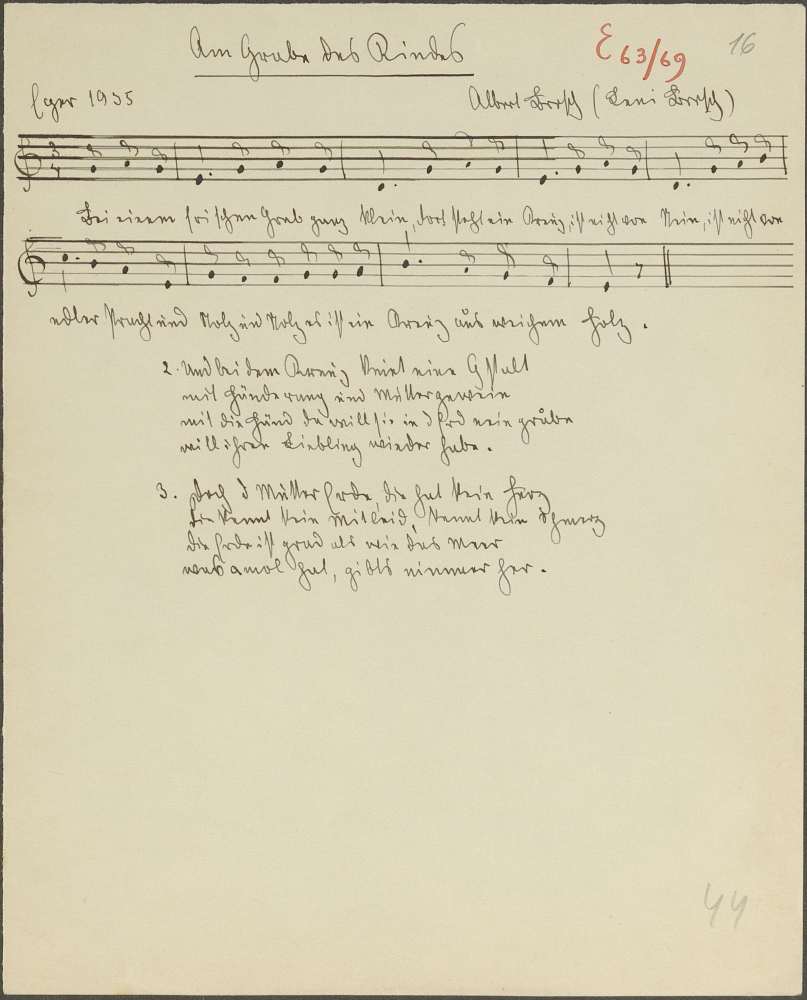 Am Grabe des Kindes
E 63/69
16
Eger 1935
Albert Brosch (Leni Brosch)
Bei einem frischen Grab ganz klein, dort steht ein Kreuz, ist nicht von Stein, ist nicht von
edler Pracht und Stolz und Stolz es ist ein Kreuz aus weichem Holz.
2. Und bei dem Kreuz kniet eine Gstalt
mit Händerung und Muttergewein
mit die Händ da will sie in d Erd nein grabe
will ihren Liebling wieder habe.
3. Doch d Mutter Erde, die hat kein Herz
die kennt kein Mitleid, kennt kein Schmerz
die Erde ist grad als wie das Meer
was amol hat, gibts nimmer her.
44